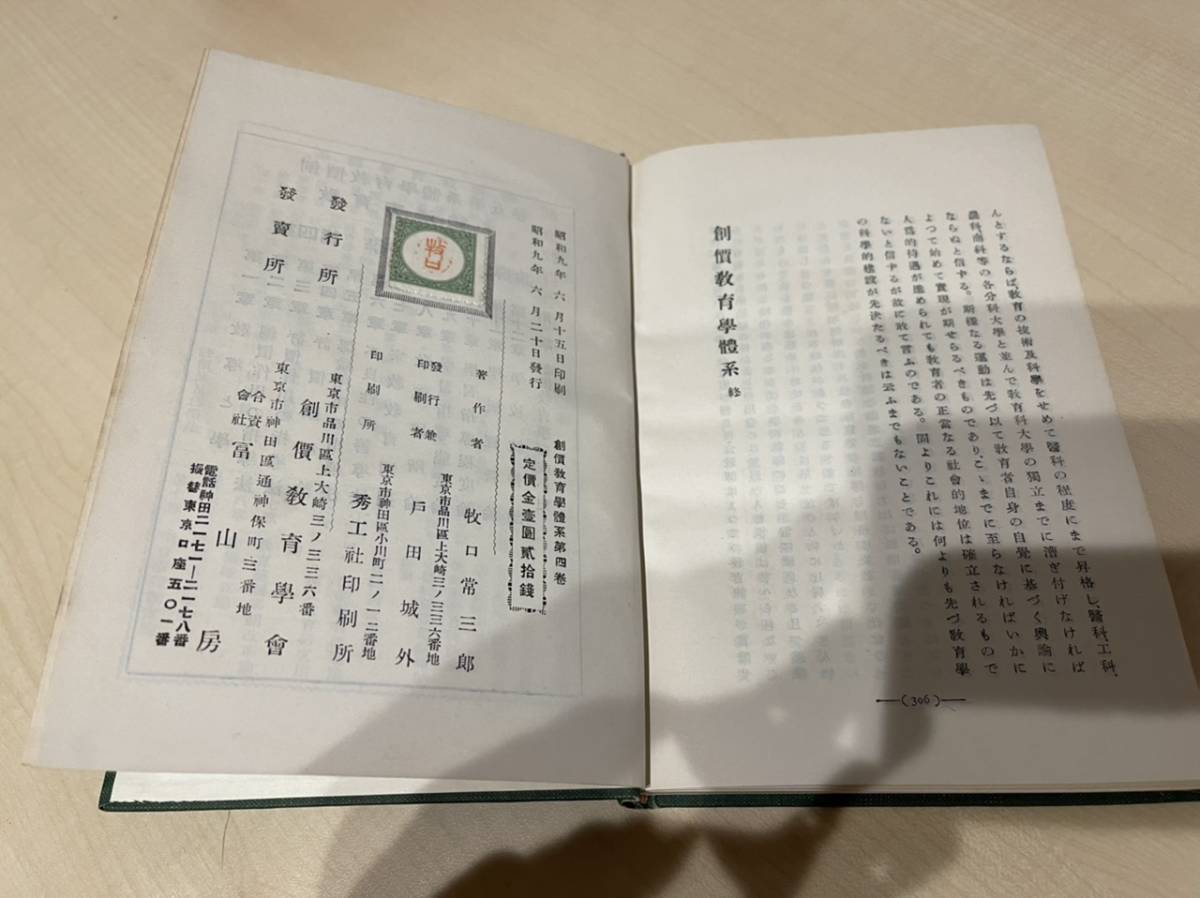 んとするならば、敎育の技術及科學をせめて醫科の程度にまで昇格し、醫科工科、
農科商科等の各分科大學と並んで敎育科大學の獨立までに漕ぎ付けなければ
ならぬと信ずる。斯樣なる運動は先づ以て敎育者自身の自覺に基づく輿論に
よつて始めて實現が期せらるべきものであり、こゝまでに至らなければいかに
人爲的待遇が進められても敎育者の正當なる社會的地位は確立されるもので
ないと信ずるが故に敢て言ふのである。固よりこれには何よりも先づ敎育學
の科學的建設が先決たるべきは云ふまでもないことである。
創價敎育學體系 終
(306)
創價敎育學體系第四卷
定價金壹圓貳拾錢
昭和九年六月十五日印刷
昭和九年六月二十日發行
牧口
著作者 牧口常三郎
東京市品川區上大崎三ノ三三六番地
發行兼印刷者 戶田城外
東京市神田區小川町二ノ一二番地
印刷所 秀工社印刷所
東京市品川區上大崎三ノ三三六番
發行所 創價敎育學會
東京市神田區通神保町三番地
發賣所 合資會社 冨山房
電話神田二一七一―二一七八番
振替東京口座五〇一番